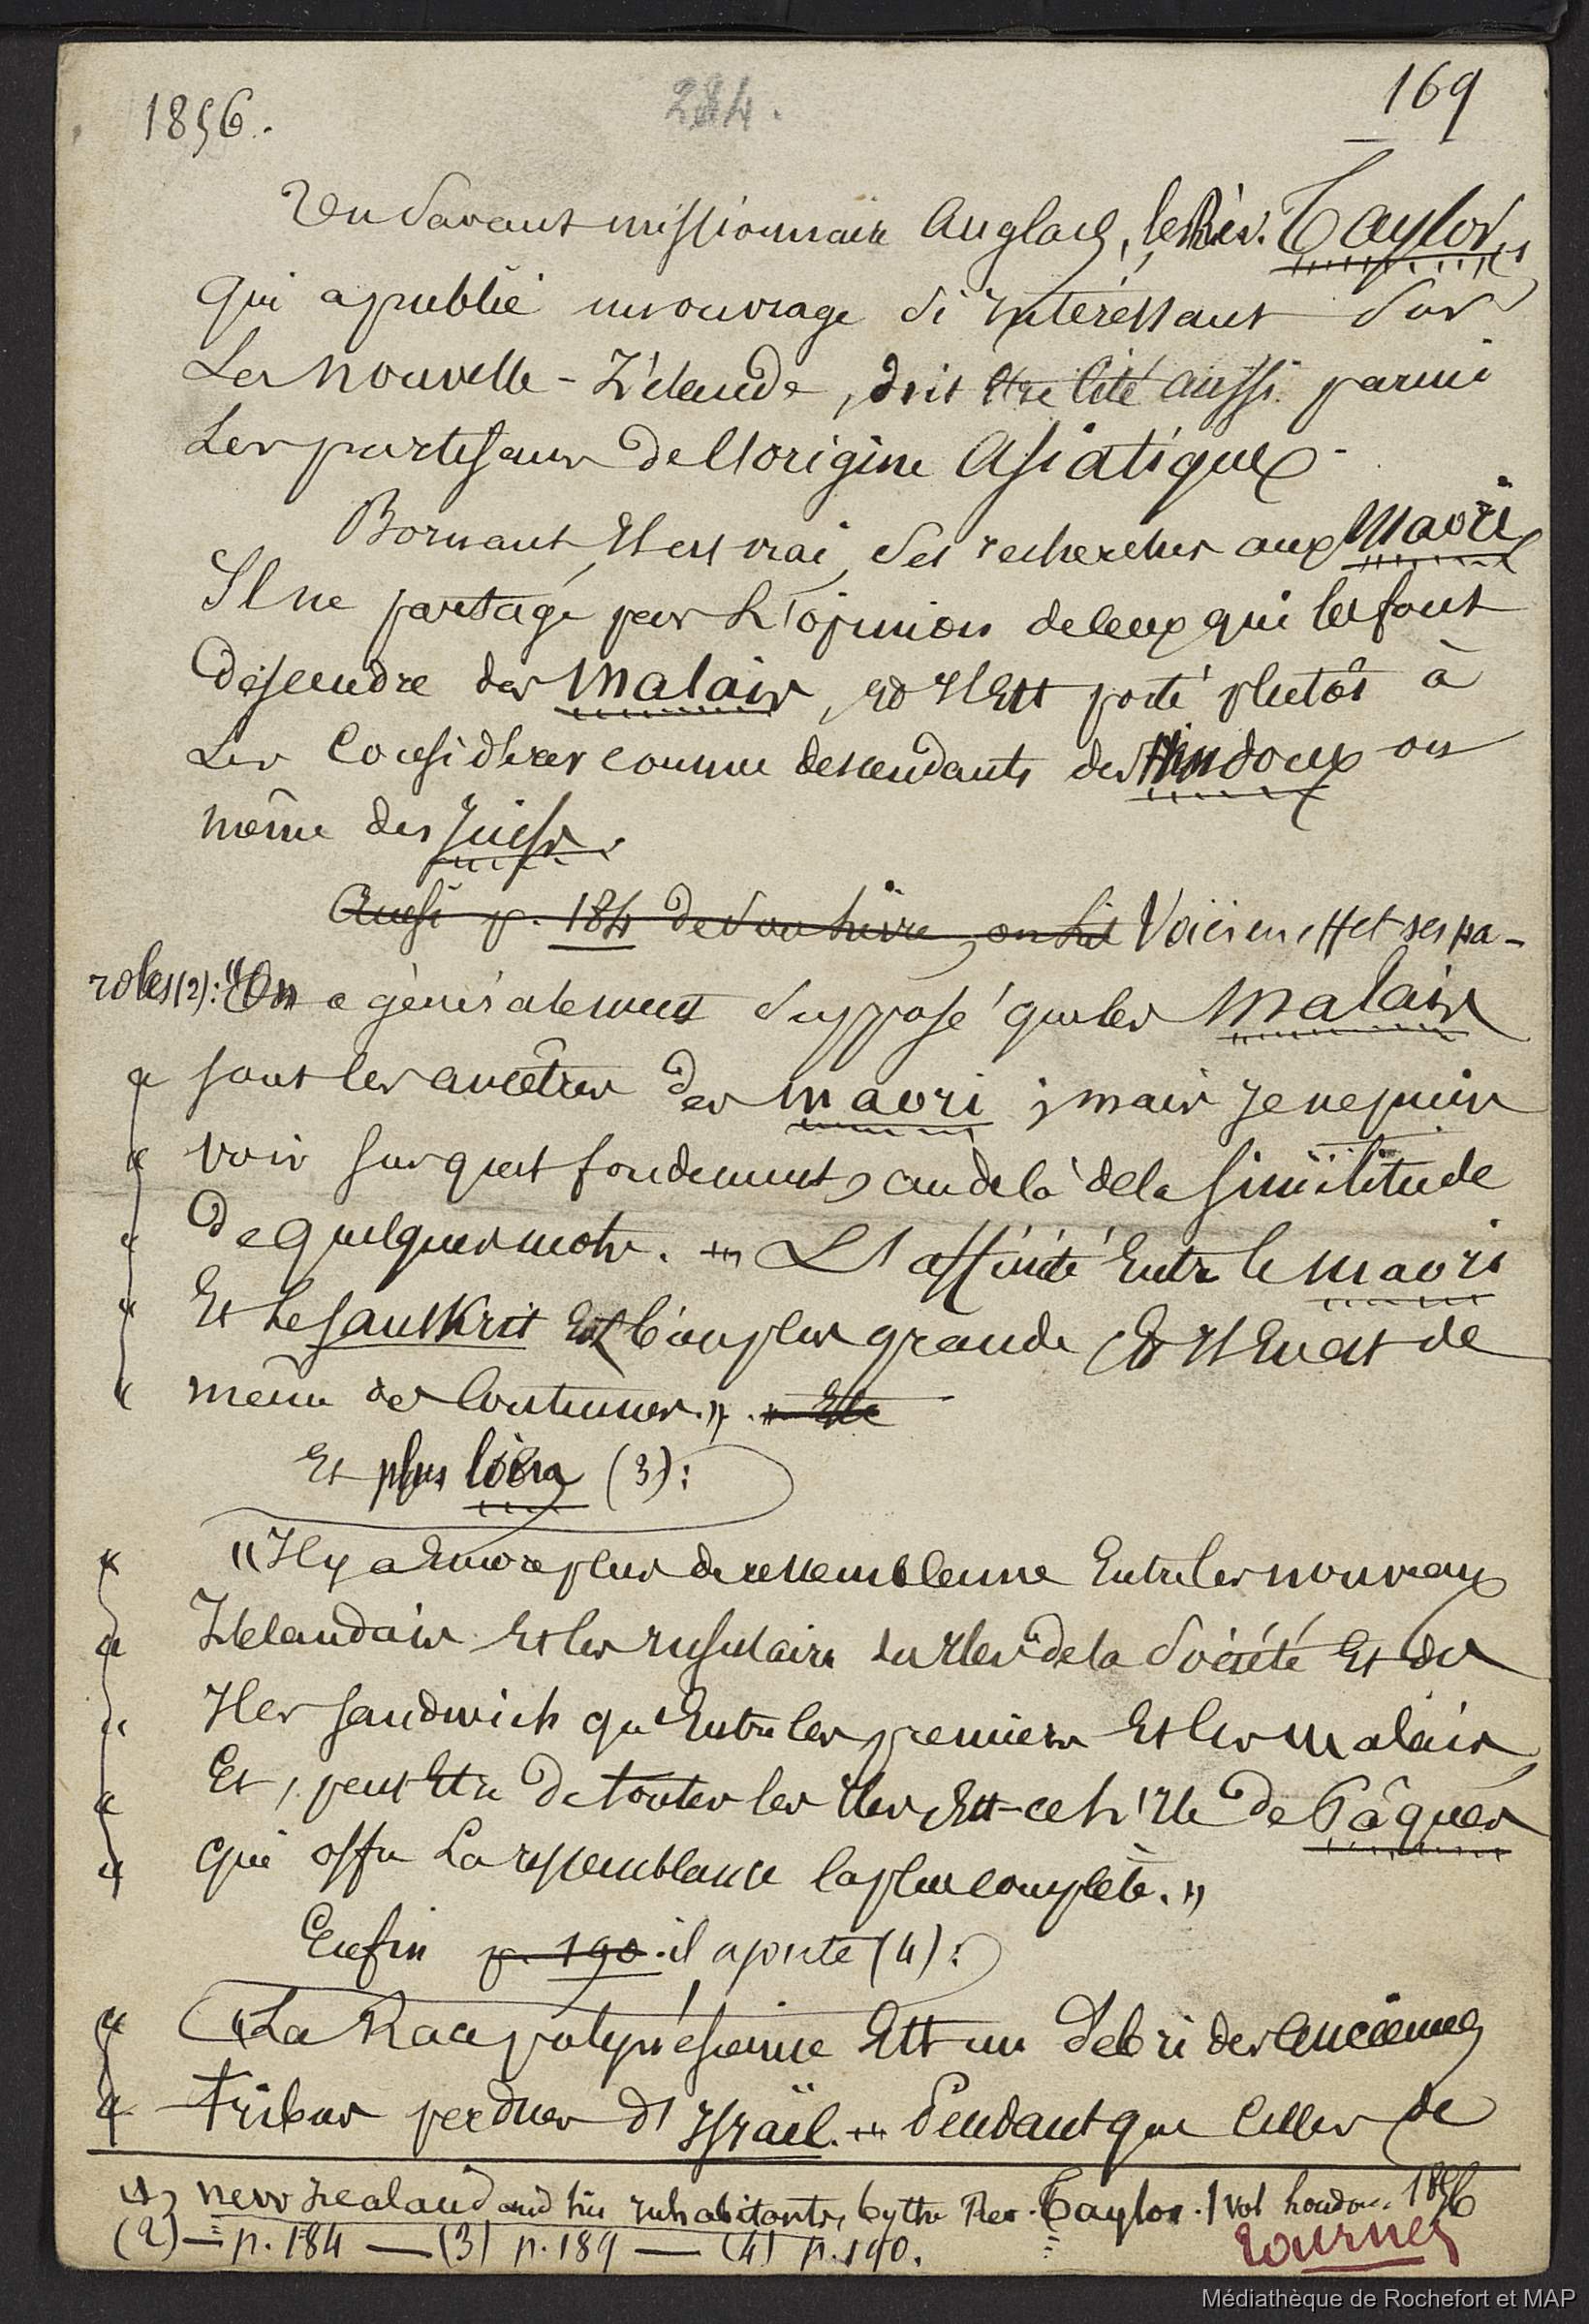 1856.
284.
169
Un savant missionnaire Anglais, le Rév. Taylor,
qui a publié un ouvrage si intéressant sur
La nouvelle-Zélande, doit être cité aussi parmi
Les partisans de l'origine Asiatique.
Bornant, il est vrai, ses recherches aux Maori
Il ne partage pas L'opinion de ceux qui les font
déscendre des Malais, et il Est porté plutôt à
Les Considérer comme descendants des Hindoux ou
même des Juifs.
Aussi p. 184 de son livre, on lit Voici en effet ses pa-
roles (2): "On a généralement supposé que les Malais
« sont les ancêtres des maori ; mais je ne puis
« voir sur quel fondement, au delà de la similitude
« de quelques mots. — L'affinité Entre le maori
« Et le sanskrit Est bien plus grande Et il En est de
« même des Coutumes.» .
Et plus loin (3):
« "Il y a Encore plus de ressemblance Entre les nouveaux
« Zélandais Et les insulaires des Iles de la Société Et des
« Iles Sandwich qu'Entre les premiers Et les malais,
« Et, peut Etre de toutes les Iles Est-ce L'Ile de Pâques
« qui offre La ressemblance la plus complète.»
Enfin p. 190. il ajoute (4):
« "La Race polynésienne Est un débri des anciennes
« tribus perdues d'Israël. — Pendant que celles de
(1) new zealand and his inhabitants, by the Rev. Taylor. 1 vol London. 1856
(2) — p. 184 — (3) p. 189 — (4) p. 190.
tournez
Médiathèque de Rochefort et MAP